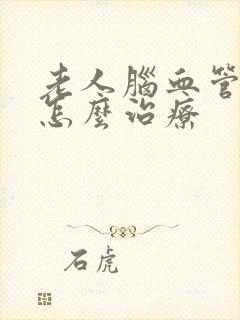 老人腦血管
怎麼治療
石虎